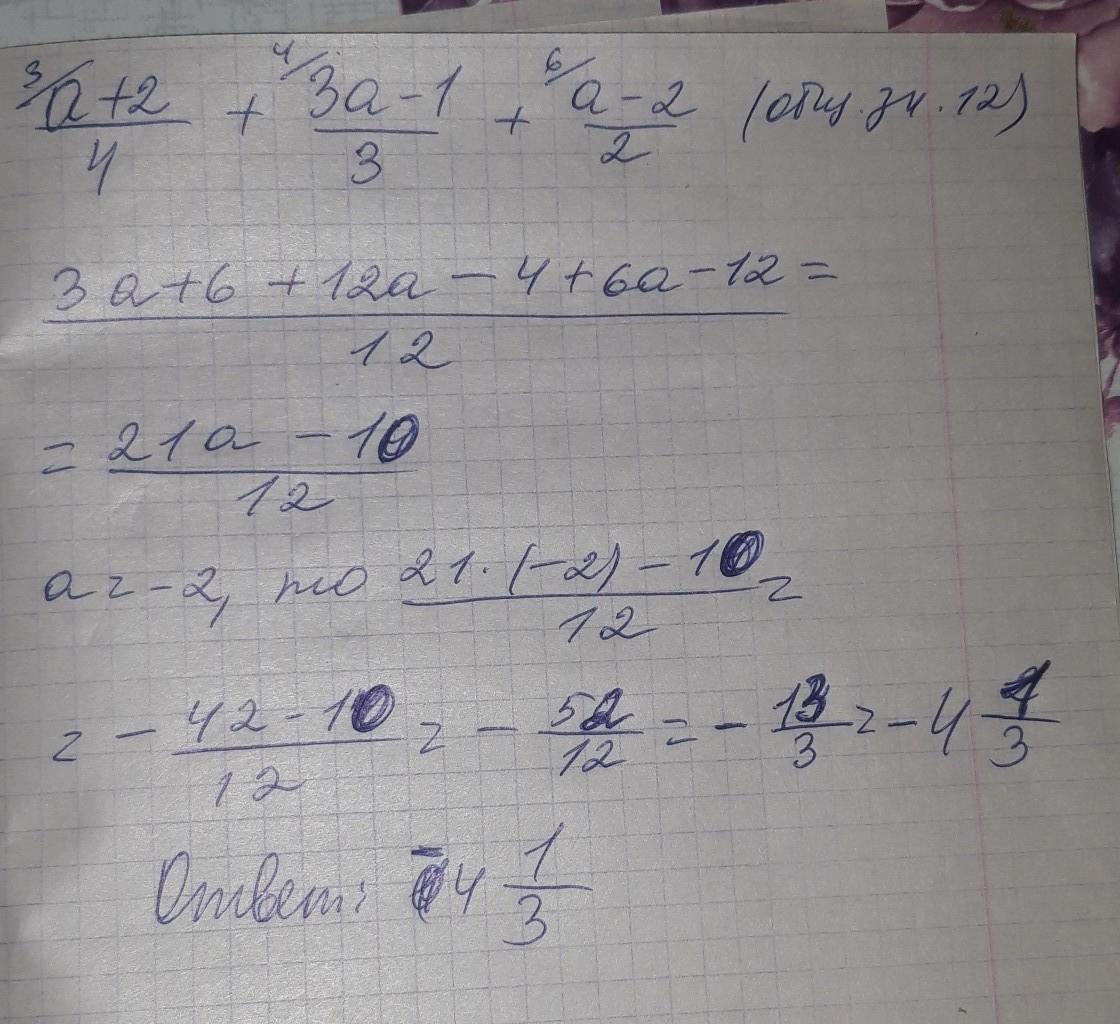 3/ a+2 / 4 + 4/ 3a-1 / 3 + 6/ a-2 / 2 (общ. зн. 12)
3a+6+12a-4+6a-12 / 12 =
= 21a-10 / 12
a=-2, то 21·(-2)-10 / 12 =
= - 42-10 / 12 = - 52 / 12 = - 13 / 3 = -4 1/3
Ответ: -4 1/3